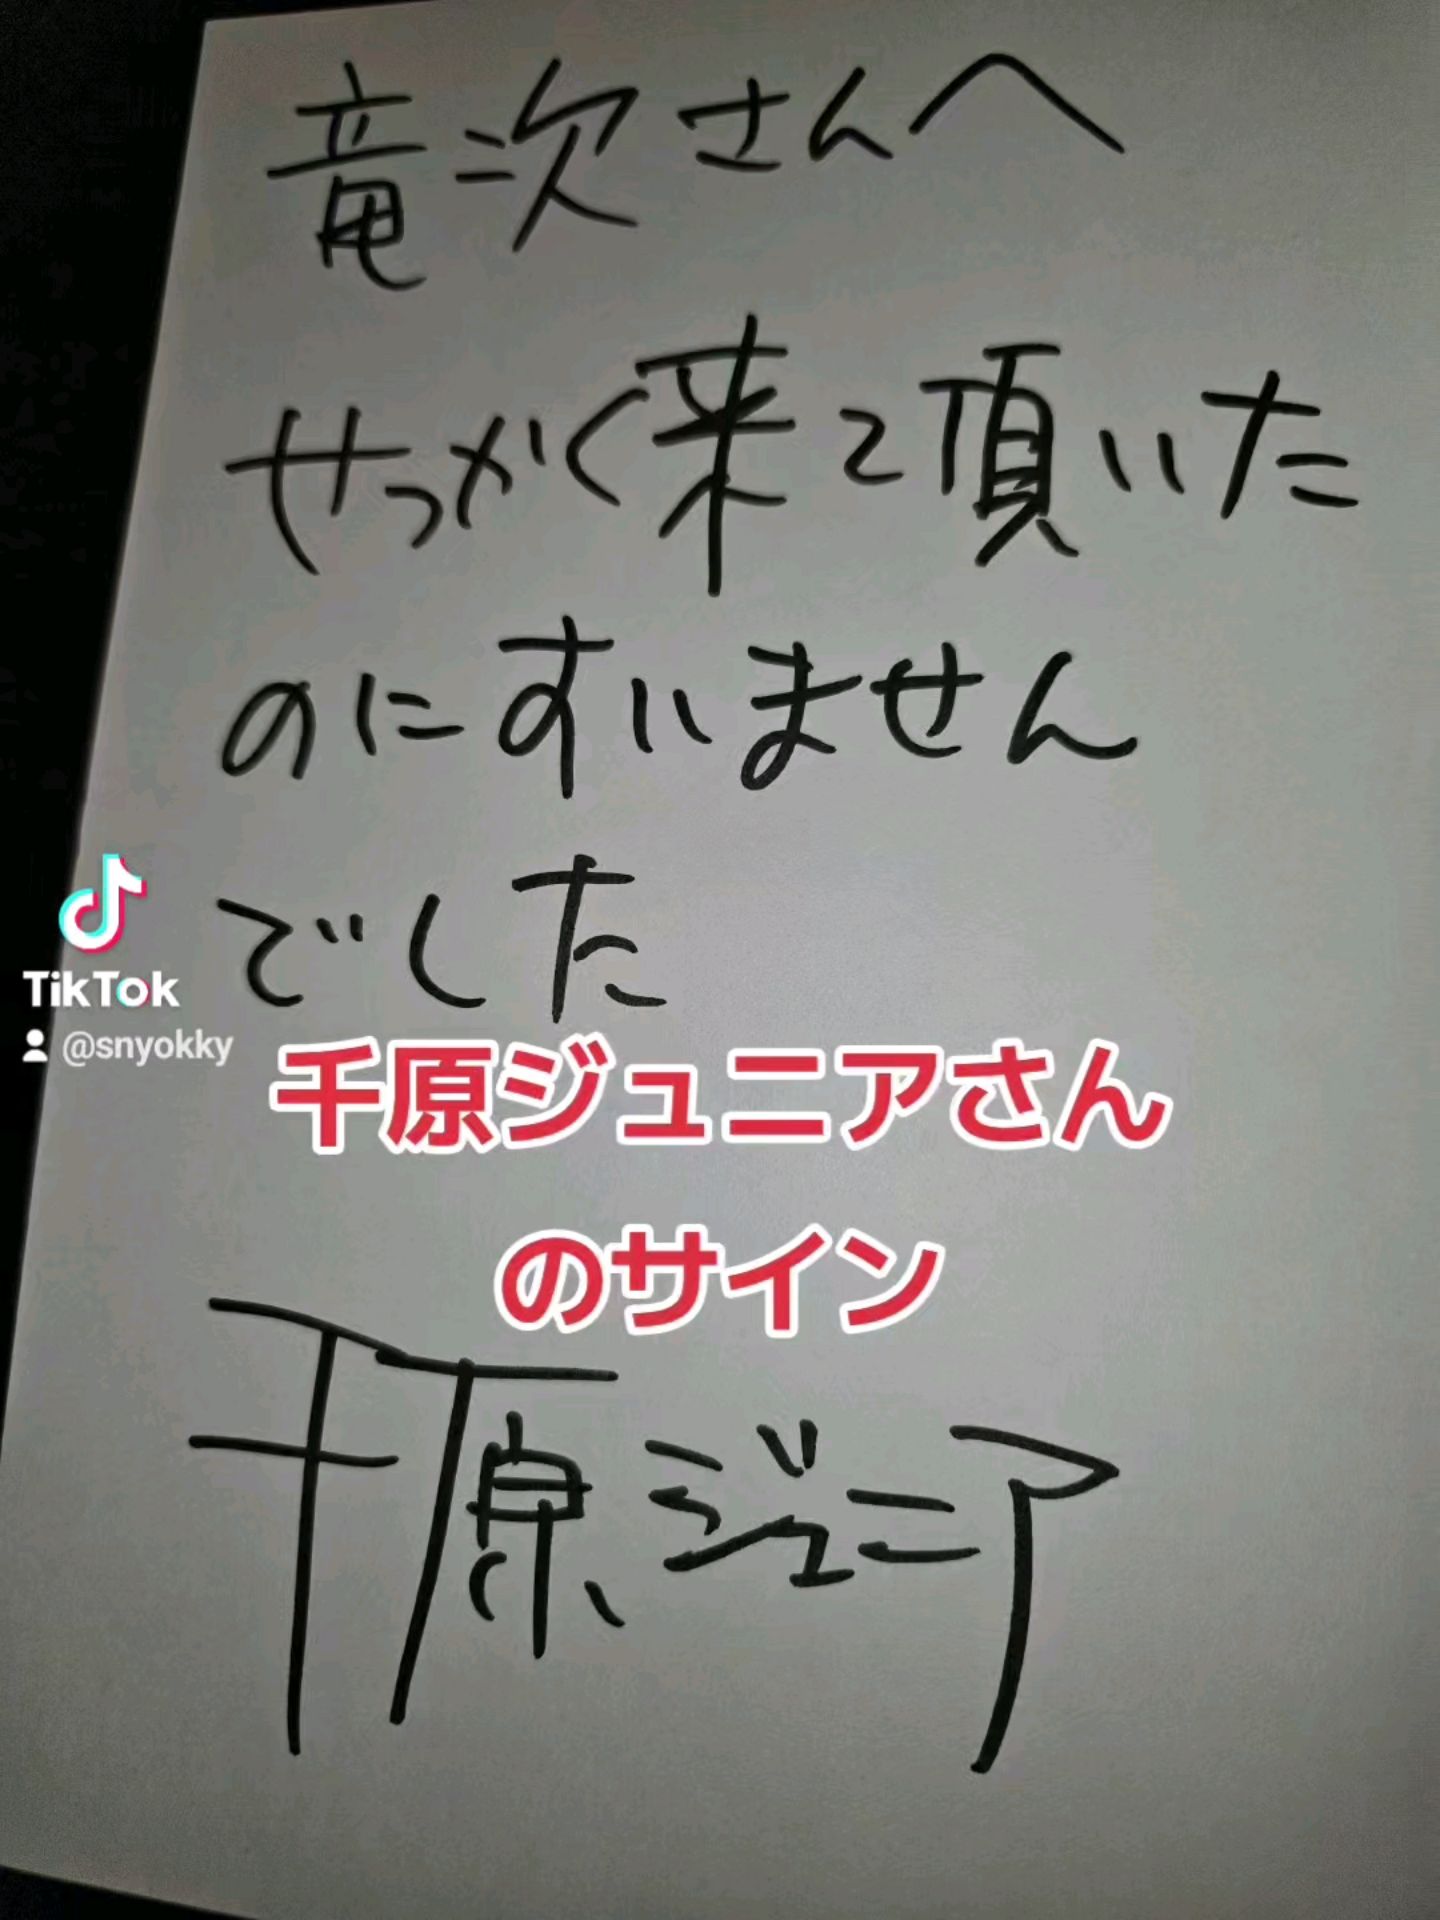 竜次さんへ
せっかく来て頂いた
のにすいません
でした
TikTok
@snyokky
千原ジュニアさん
のサイン
千原ジュニア